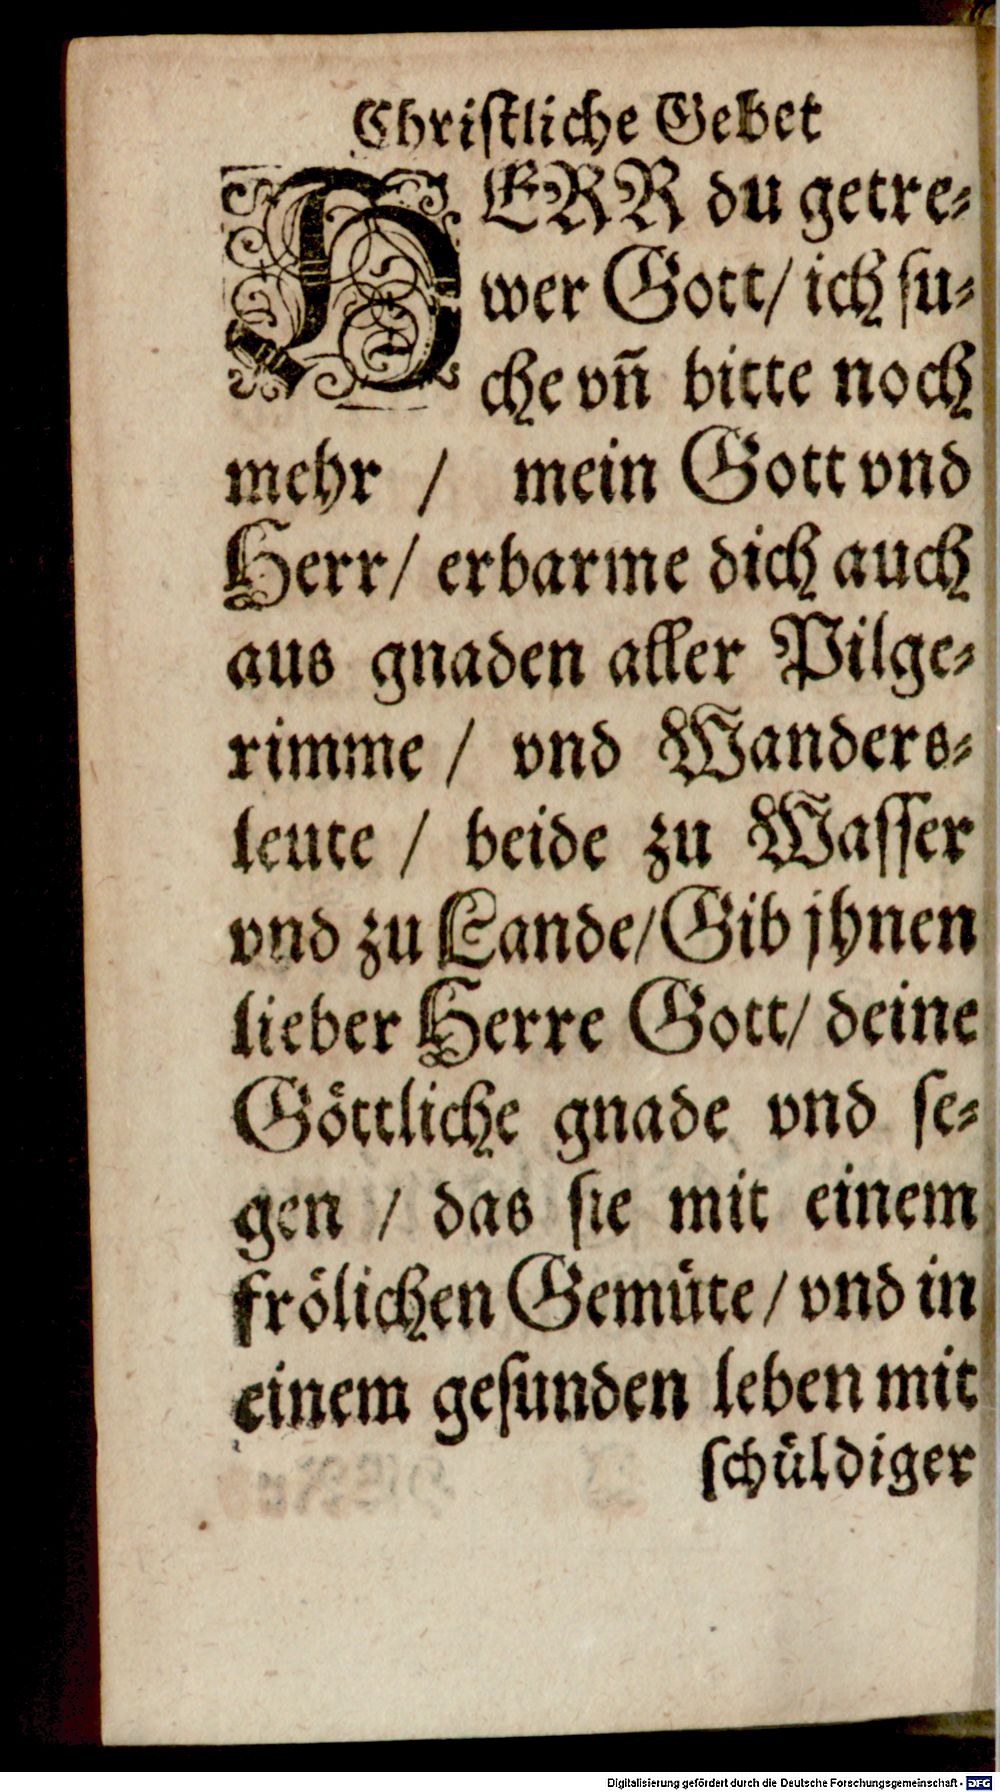 Christliche Gebet
HERR du getre-
wer Gott/ ich su-
che vñ bitte noch
mehr / mein Gott vnd
Herr/ erbarme dich auch
aus gnaden aller Pilge-
rimme / vnd Wanders-
leute / beide zu Wasser
vnd zu Lande/ Gib jhnen
lieber Herre Gott/ deine
Göttliche gnade vnd se-
gen / das sie mit einem
frölichen Gemüte / vnd in
einem gesunden leben mit
schüldiger
Digitalisierung gefördert durch die Deutsche Forschungsgemeinschaft - DFG